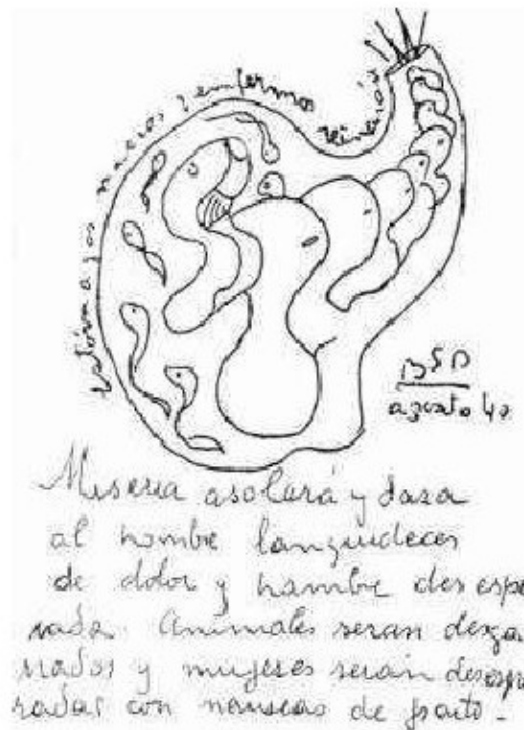 estómagos vacios y enfermos
BSP
agosto 40
Miseria asolará y dara
al hombre languideces
de dolor y hambre desespe
rada. Animales seran desga
rrados y mujeres serán desespe
radas con nauseas de parto.